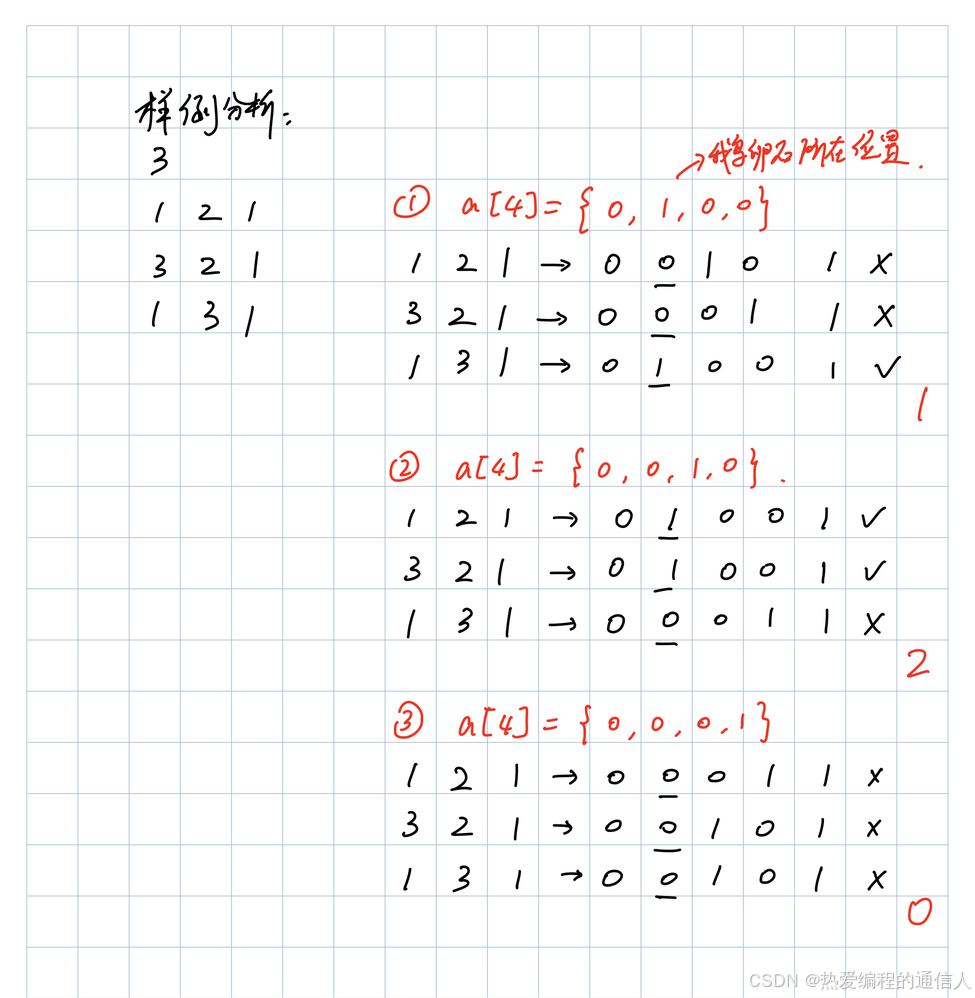 样例分析:
3
1 2 1
3 2 1
1 3 1
→我拿卵石所在位置.
① a[4]={0,1,0,0}
1 2 1 → 0 0 1 0 1 ×
3 2 1 → 0 0 0 1 1 ×
1 3 1 → 0 1 0 0 1 ✓
1
② a[4]={0,0,1,0}.
1 2 1 → 0 1 0 0 1 ✓
3 2 1 → 0 1 0 0 1 ✓
1 3 1 → 0 0 0 1 1 ×
2
③ a[4]={0,0,0,1}
1 2 1 → 0 0 0 1 1 ×
3 2 1 → 0 0 1 0 1 ×
1 3 1 → 0 0 1 0 1 ×
0
CSDN @热爱编程的通信人